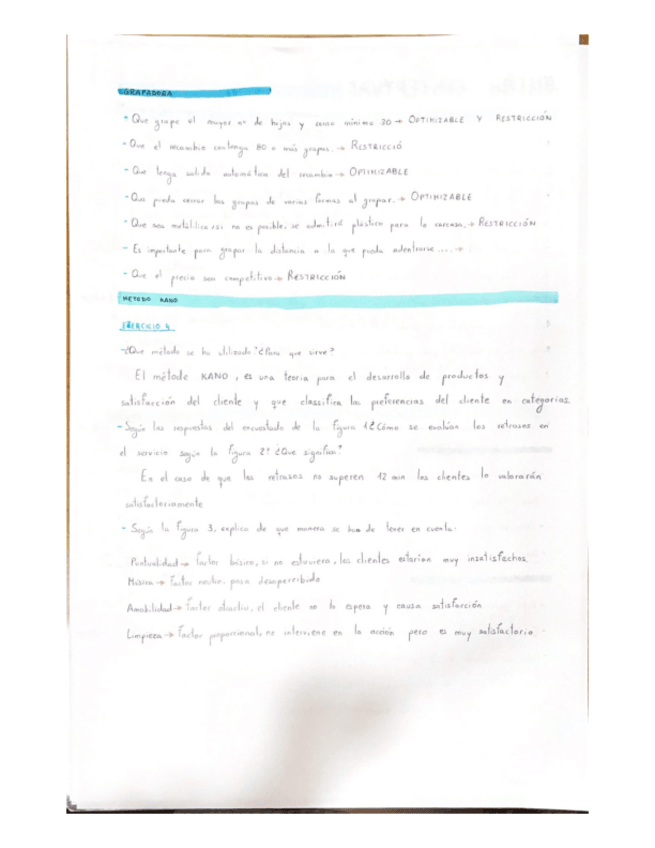 GRAPADORA
- Que grape el mayor nº de hojas y como mínimo 20 → OPTIMIZABLE Y RESTRICCIÓN
- Que el recambio contenga 80 o más grapas. → RESTRICCIÓ
- Que tenga salida automática del recambio → OPTIMIZABLE
- Que pueda cerrar las grapas de varias formas al grapar. → OPTIMIZABLE
- Que sea metálica, si no es posible, se admitirá plástico para la carcasa. → RESTRICCIÓN
- Es importante para grapar la distancia a la que pueda adentrarse .... →
- Que el precio sea competitivo → RESTRICCIÓN
METODO KANO
EJERCICIO 4
- ¿Que método se ha utilizado? ¿Para que sirve?
El métode KANO, es una teoria para el desarrollo de productos y
satisfacción del cliente y que classifica las preferencias del cliente en categorias.
- Según las respuestas del encuestado de la figura 1 ¿Cómo se evalúan los retrasos en
el servicio según la figura 2? ¿Que significan?
En el caso de que los retrasos no superen 12 min los clientes lo valorarán
satisfactoriamente
- Según la figura 3, explica de que manera se han de tener en cuenta:
Puntualidad → factor básico, si no estuviera, los clientes estarían muy insatisfechos
Música → factor neutro, pasa desapercibido
Amabilidad → factor atractivo, el cliente no lo espera y causa satisfacción
Limpieza → factor proporcional, no interviene en la acción pero es muy satisfactoria